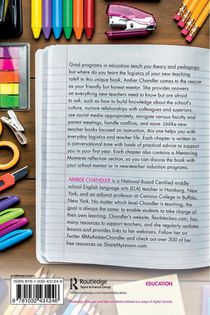 Grad programs in education teach you theory and pedagogy,
but where do you learn the logistics of your new teaching
role? In this unique book, Amber Chandler comes to the rescue
as your friendly but honest mentor. She provides answers
on everything new teachers need to know but are afraid
to ask, such as how to build knowledge about the school's
culture, nurture relationships with colleagues and superiors,
use social media appropriately, navigate various faculty
and parent meetings, handle conflicts, and more. Unlike new
teacher books focused on instruction, this one helps you with
everyday logistics and teacher life. Each chapter is written in
a conversational tone with loads of practical advice to support
you in your first year. Each chapter also contains a Mentoring
Moments reflection section, so you can discuss the book with
your school mentor or in new-teacher induction programs.
AMBER CHANDLER is a National Board Certified middle
school English language arts (ELA) teacher in Hamburg, New
York, and an adjunct professor at Canisius College in Buffalo,
New York. No matter which level Chandler is teaching, the
goal is always the same: to enable students to take charge of
their own learning. Chandler's website, flexibleclass.com, has
many resources to support teachers, and the regularly updated
lessons and provides links to her webinars. Follow her on
Twitter @MsAmberChandler and check out over 300 of her
free resources on ShareMyLesson.com.
EDUCATION
ISBN 978-1-032-43124-6
9 781032 431246
Routledge
Taylor & Francis Group
www.routledge.com